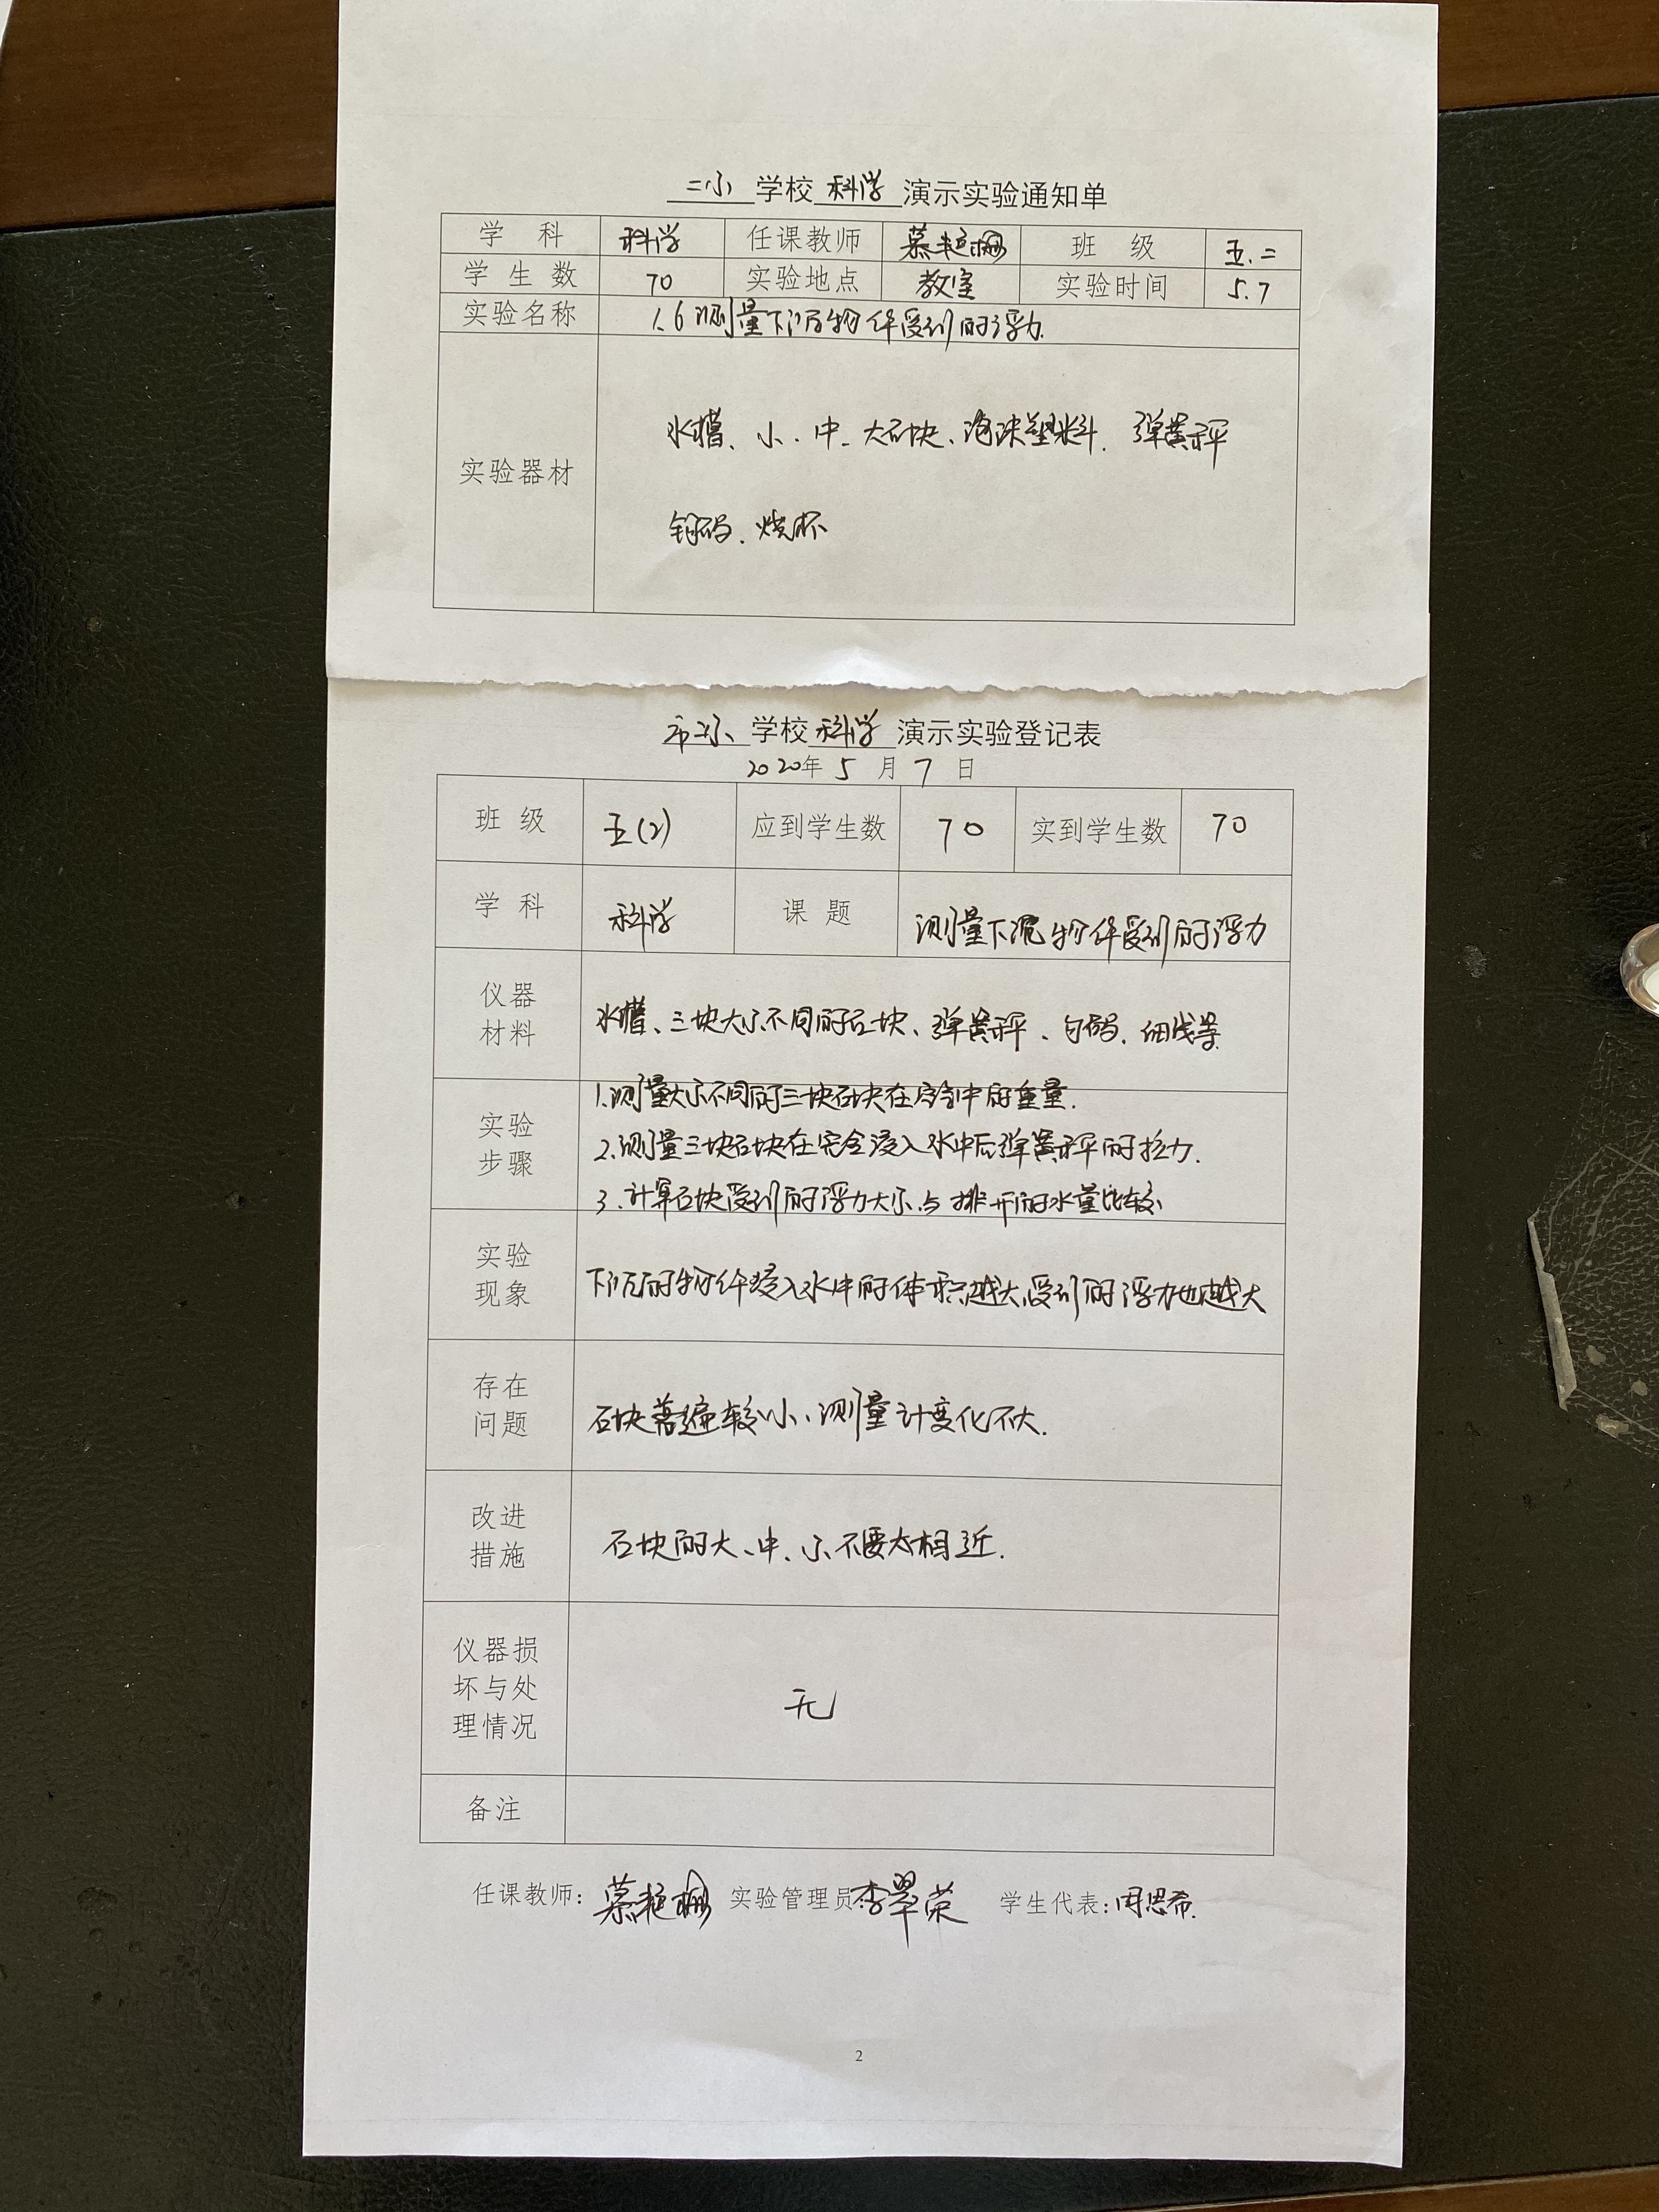 二小 学校 科学 演示实验通知单
学 科 科学 任课教师 慕艳姗 班 级 五.二
学 生 数 70 实验地点 教室 实验时间 5.7
实验名称 1.6 测量下沉物体受到的浮力.
水槽、小、中、大石块、泡沫塑料. 弹黄秤
实验器材
钩码. 烧杯
市二小 学校 科学 演示实验登记表
2020年 5 月 7 日
班 级 五(2) 应到学生数 70 实到学生数 70
学 科 科学 课 题 测量下沉物体受到的浮力
仪器
材料
水槽、三块大小不同的石块、弹黄秤、勾码. 细线等
实验
步骤
1.测量大小不同的三块石块在空气中的重量.
2.测量三块石块在完全浸入水中后弹黄秤的拉力.
3.计算石块受到的浮力大小.与排开的水量比较
实验
现象
下沉的物体浸入水中的体积越大,受到的浮力也越大
存在
问题
石块普遍较小、测量计变化不大.
改进
措施
石块的大、中、小不要太相近.
仪器损
坏与处
理情况
无
备注
任课教师: 慕艳姗 实验管理员 李翠荣 学生代表: 周思希.
2